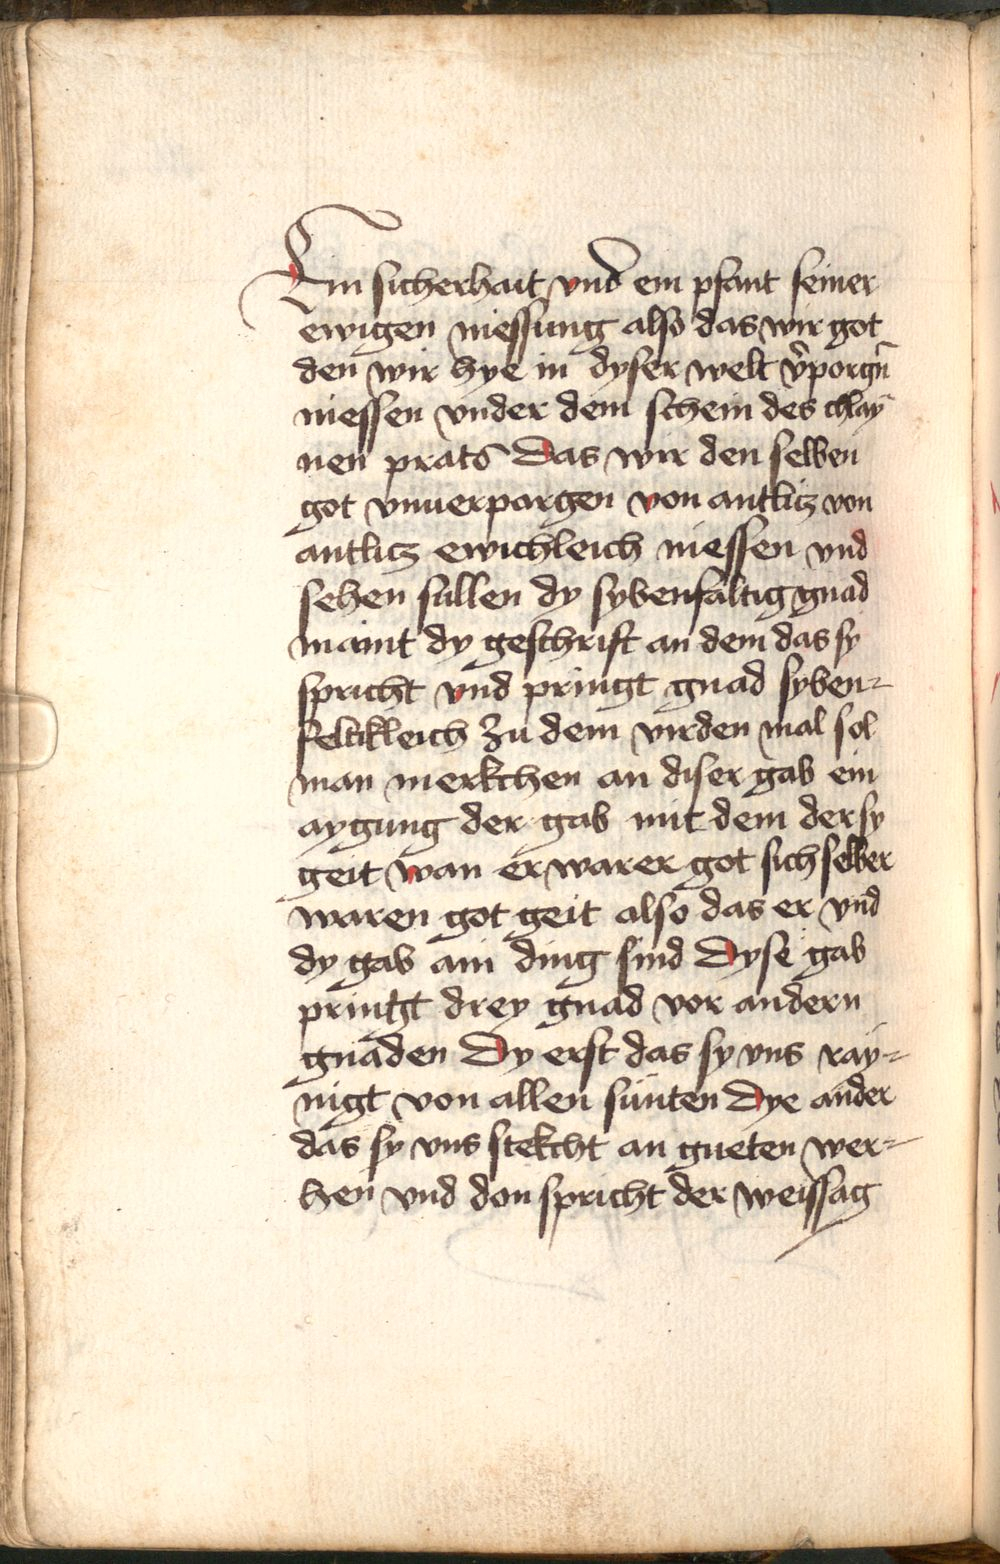 Ein sicherhait vnd ein pfant seiner
ewigen niessung also das wir got
den wir hye in dyser welt v̄porgn̄
niessen vnder dem schein des chlay
nen prats Das wir den selben
got vnuerpargen von antlitz von
antlitz ewichleich niessen vnd
sehen sullen dy sybenfaltig gnad
maint dy geschrift an dem das sy
spricht vnd pringt gnad syben=
feltikleich Zu dem virden mal sol
man merkchen an diser gab ein
aygung der gab mit dem der sy
geit wan er warer got sich selber
waren got geit also das er vnd
dy gab ain ding sind Dyse gab
pringt drey gnad vor andern
gnaden Dy erst das sy vns ray=
nigt von allen sünten Dye ander
das sy vns stekcht an gueten wer=
hen vnd don spricht der weissag